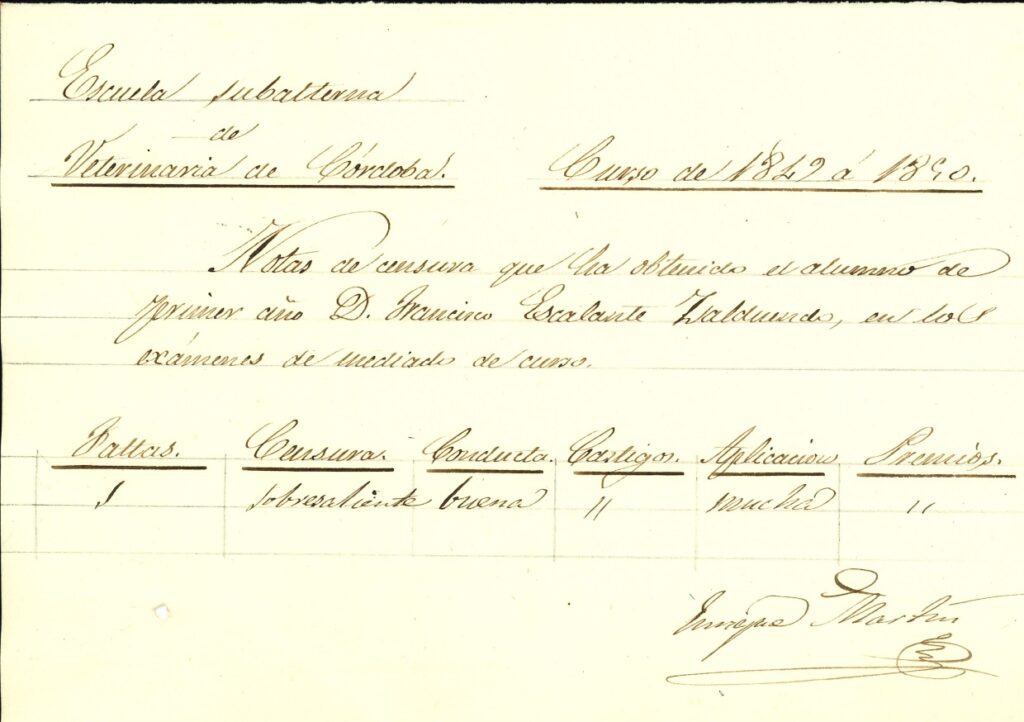 Escuela subalterna
de
Veterinaria de Córdoba. Curso de 1849 á 1850.
Notas de censura que ha obtenido el alumno de
primer año D. Francisco Escalante Zalduendo, en los
exámenes de mediado de curso.
Faltas. Censura. Conducta. Castigos. Aplicacion Premios.
sobresaliente buena " mucha "
Enrique Martin